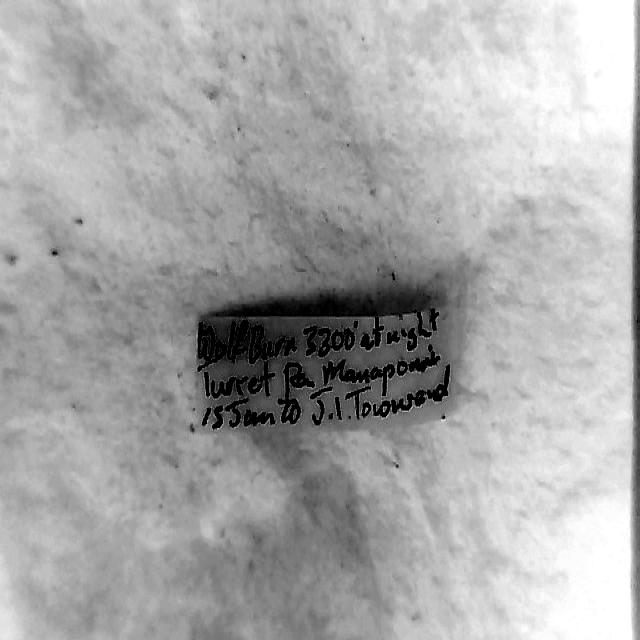 Wolf Burn 3300' at night
Turret Ra Manapouri
15 Jan 70 J.I. Townsend